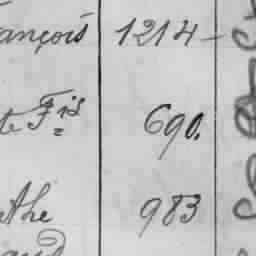 ançois 1214
te Fis 690.
the 983